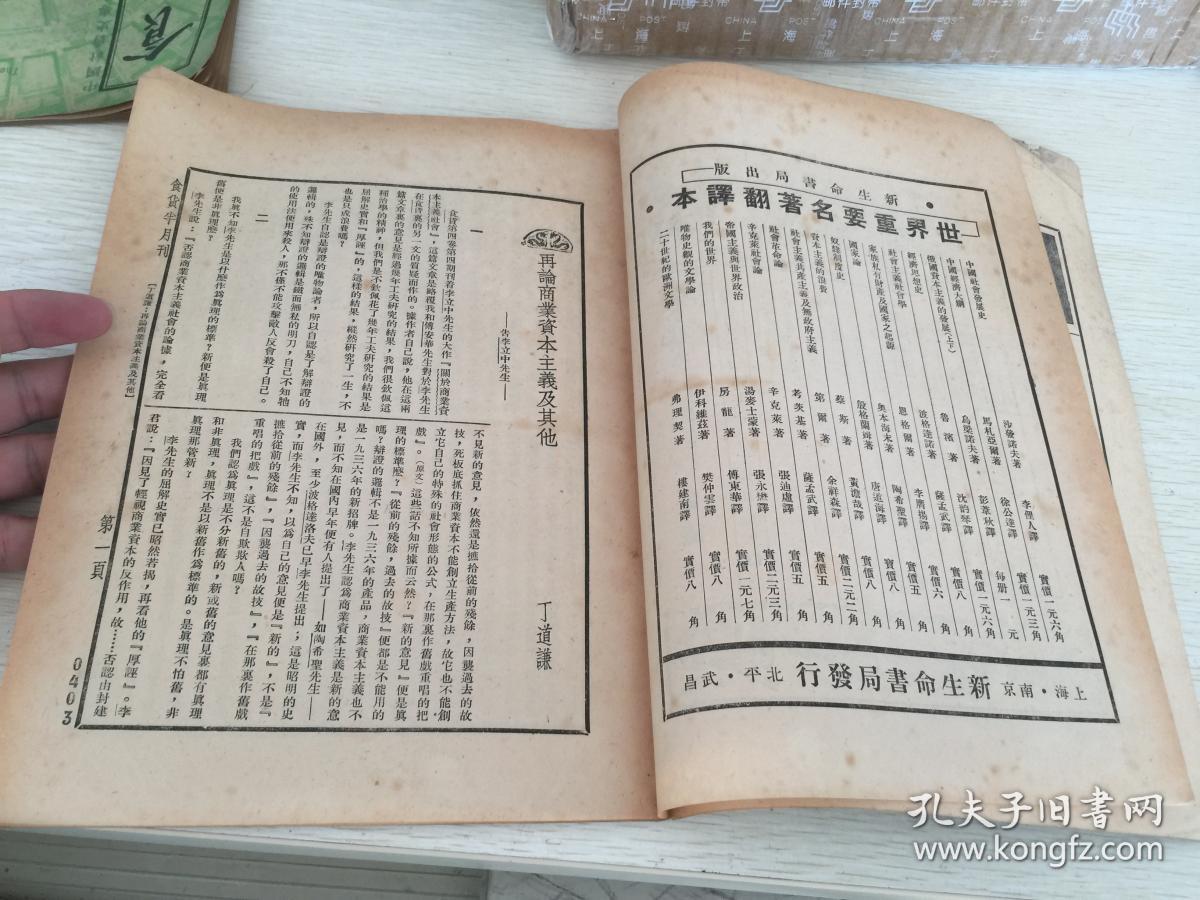 新生命書局出版
世界重要名著翻譯本
中國社會發展史 沙發諾夫著 李俚人譯 實價一元六角
中國經濟大綱 馬札亞爾著 徐公達譯 實價一元三角
俄國資本主義的發展(上下) 烏梁諾夫著 彭葦秋譯 每冊一元
經濟思想史 魯濱著
社會主義社會學
家族私有財產及國家之起源 恩格爾著
國家論 奧本海末著
奴隸制度史 殷格蘭姆著
資本主義的浪費 蔡斯著
社會主義共產主義及無政府主義 第爾著
社會革命論 考茨基著
辛克萊社會論 辛克萊著
帝國主義與世界政治 湯麥士蒙著
我們的世界 房龍著
唯物史觀的文學論 伊科維茲著
二十世紀的歐洲文學 弗理契著
沈韵琴譯
薩孟武譯
李膺揚譯
陶希聖譯
唐道海譯
黃澹哉譯
余祥森譯
薩孟武譯
張迪虛譯
張永懋譯
傅東華譯
樊仲雲譯
樓建南譯
上海・南京 新生命書局發行 北平・武昌
再論商業資本主義及其他
——告李立中先生——
丁道謙
一
食貨第四卷第四期刊着李立中先生的大作『關於商業資
本主義社會』,這篇文章是略覆我和傅安華先生對於李先生
在食貨裏的另一文的質疑而作的。據作者自己說,他在這兩
篇文章裏的意見是經過幾年工夫研究的結果,我們很欽佩這
種治學的精神,但我們是不欽佩花了幾年工夫研究的結果是
屈解史實和『厚誣』的,這樣的結果,縱然研究了一生,不
也是只成浪費嗎?
李先生自認是辯證的唯物論者,所以自認是了解辯證的
邏輯的,殊不知辯證的邏輯是鐵面無私的明刀,自己不知牠
的使用法便用來殺人,那不僅不能攻擊敵人反會殺了自己。
二
我眞不知李先生是以什麼作爲眞理的標準?新便是眞理
舊便是非眞理麼?
李先生說:『否認商業資本主義社會的論據,完全看
不見新的意見,依然還是摭拾從前的殘餘,因襲過去的故
技,死板底抓住商業資本不能創立生產方法,故它也不能創
立它自己的特殊的社會形態的公式,在那裏作舊戲重唱的把
戲』。(原文)這些話不知所據而云然?『新的意見』便是眞
理的標準麼?『從前的殘餘,過去的故技』便都是不能用的
嗎?辯證的邏輯不是一九三六年的產品,商業資本主義也不
是一九三六年的新招牌。李先生認爲商業資本主義是新的意
見,而不知在國內早年便有人提出了——如陶希聖先生——
在國外,至少波格達洛夫已早李先生提出;這是昭明的史
實,而李先生不知,以爲自己的意見便是『新的』,不是『
摭拾從前的殘餘』,『因襲過去的故技』,『在那裏作舊戲
重唱的把戲』,這不是自欺欺人嗎?
我們認爲眞理是不分新舊的,新或舊的意見裏都有眞理
和非眞理,眞理不是以新舊作爲標準的。是眞理不怕舊,非
眞理那管新?
李先生的屈解史實已昭然若揭,再看他的『厚誣』。李
君說:『因見了輕視商業資本的反作用,故……否認由封建
食貨半月刊
〔丁道謙:再論商業資本主義及其他〕
第一頁
0403
食
CHINA POST
上海
孔夫子旧书网
www.kongfz.com